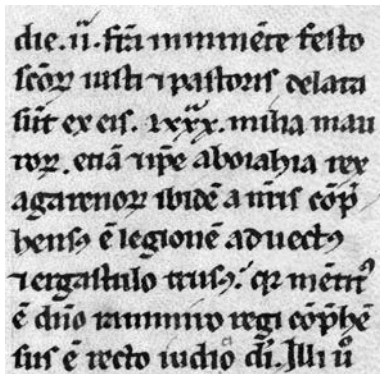 die.ii. fr̃a imminẽte festo
scõꝝ iusti ⁊ pastoris delata
sũt ex eis. lxxx. milia mau
roꝝ. etiã ⁊ ip̃e aboiahia rex
agarenoꝝ ibidẽ a nr̃is cõp̃
hensꝯ ẽ legionẽ aduectꝯ
⁊ ergastulo trusꝯ. qꝛ mẽtitꝰ
ẽ dño ranimiro regi cõp̃hẽ
sus ẽ recto iudico dĩ. Illi ů